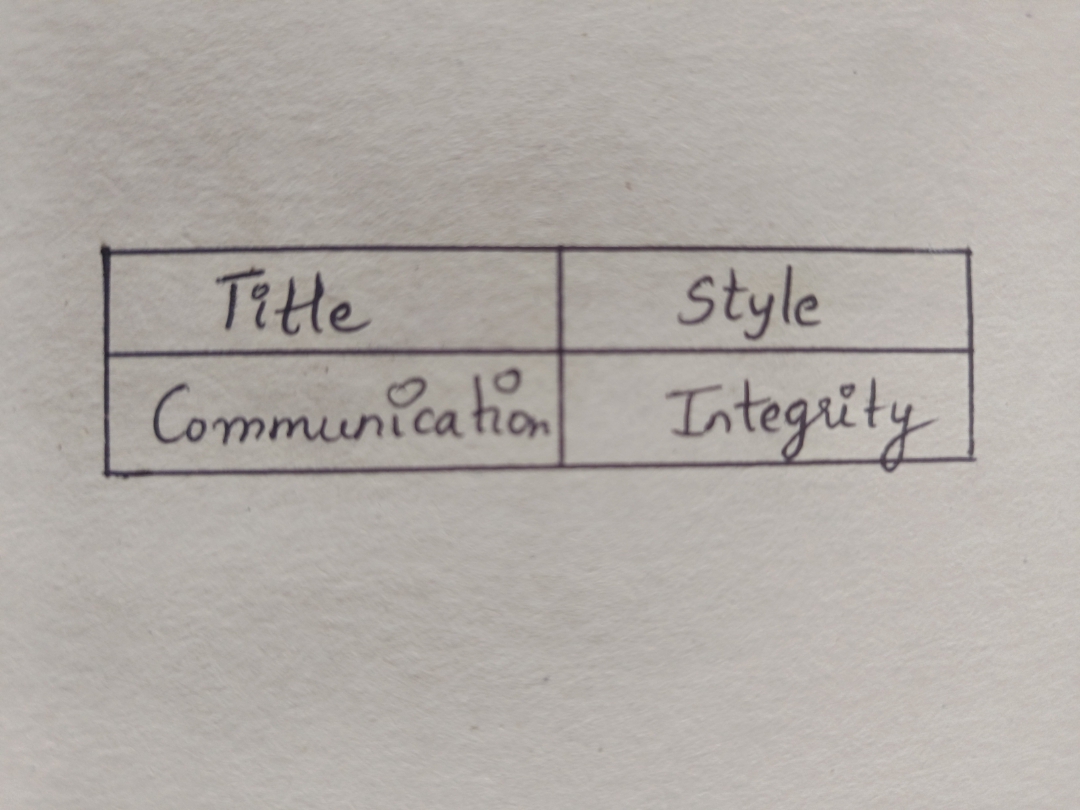 Title Style
Communication Integrity